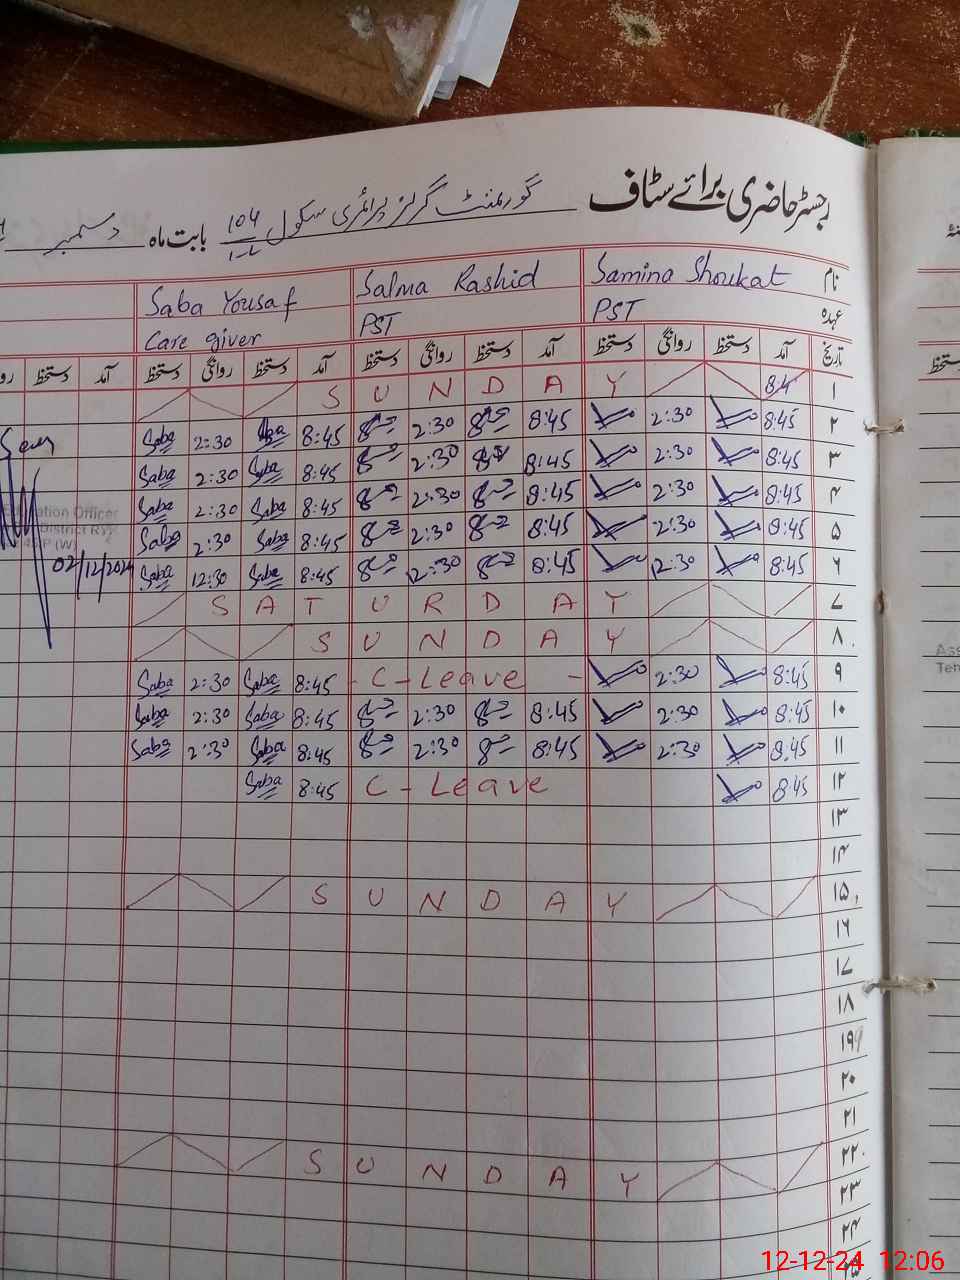 رجسٹر حاضری برائے سٹاف گورنمنٹ گرلز پرائمری سکول 104 بابت ماہ دسمبر
نام Samina Shoukat Salma Rashid Saba Yousaf
عہدہ PST PST Care giver
تاریخ آمد دستخط روانگی دستخط آمد دستخط روانگی دستخط آمد دستخط روانگی دستخط آمد دستخط
۱ SUNDAY
۲ 8:45 2:30 8:45 2:30 8:45 Saba 2:30 Saba
۳ 8:45 2:30 8:45 2:30 8:45 Saba 2:30 Saba
۴ 8:45 2:30 8:45 2:30 8:45 Saba 2:30 Saba
۵ 8:45 2:30 8:45 2:30 8:45 Saba 2:30 Saba
۶ 8:45 12:30 8:45 12:30 8:45 Saba 12:30 Saba
Education Officer
District RYK
(W)
02/12/2024
۷ SATURDAY
۸ SUNDAY
۹ 8:45 2:30 C-Leave 8:45 Saba 2:30 Saba
۱۰ 8:45 2:30 8:45 2:30 8:45 Saba 2:30 Saba
۱۱ 8:45 2:30 8:45 2:30 8:45 Saba 2:30 Saba
۱۲ 8:45 C-Leave 8:45 Saba
۱۳
۱۴
۱۵ SUNDAY
۱۶
۱۷
۱۸
۱۹
۲۰
۲۱
۲۲ SUNDAY
۲۳
۲۴
12-12-24 12:06